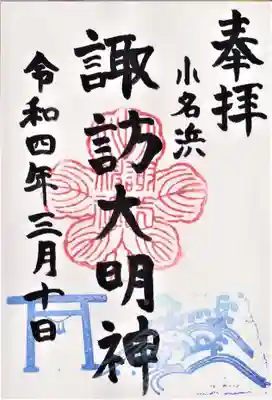 奉拝
小名浜
諏訪大明神
令和四年三月十日